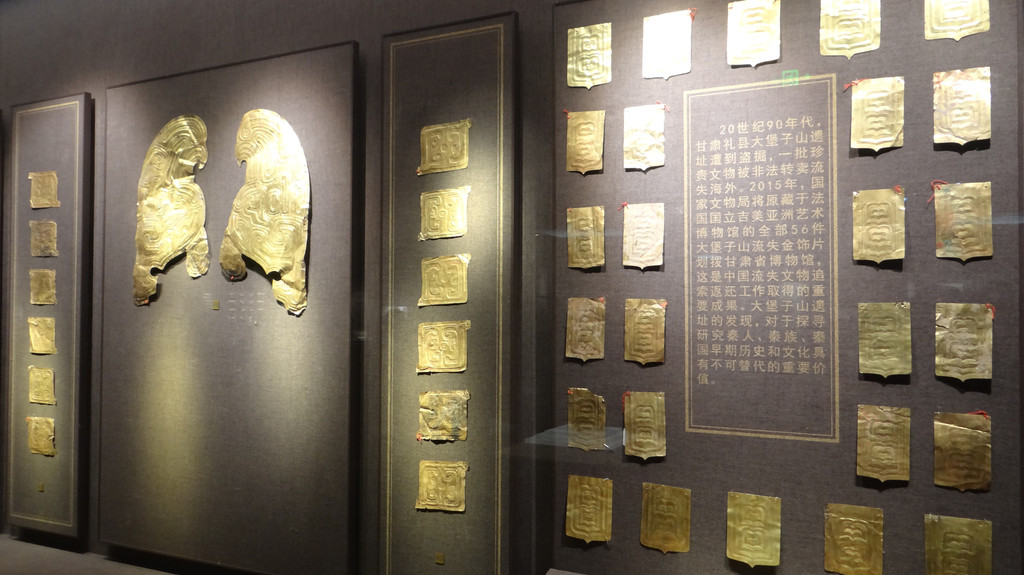 20世纪90年代，
甘肃礼县大堡子山遗
址遭到盗掘，一批珍
贵文物被非法转卖流
失海外。2015年，国
家文物局将原藏于法
国国立吉美亚洲艺术
博物馆的全部56件
大堡子山流失金饰片
划拨甘肃省博物馆。
这是中国流失文物追
索返还工作取得的重
要成果。大堡子山遗
址的发现，对于探寻
研究秦人、秦族、秦
国早期历史和文化具
有不可替代的重要价
值。